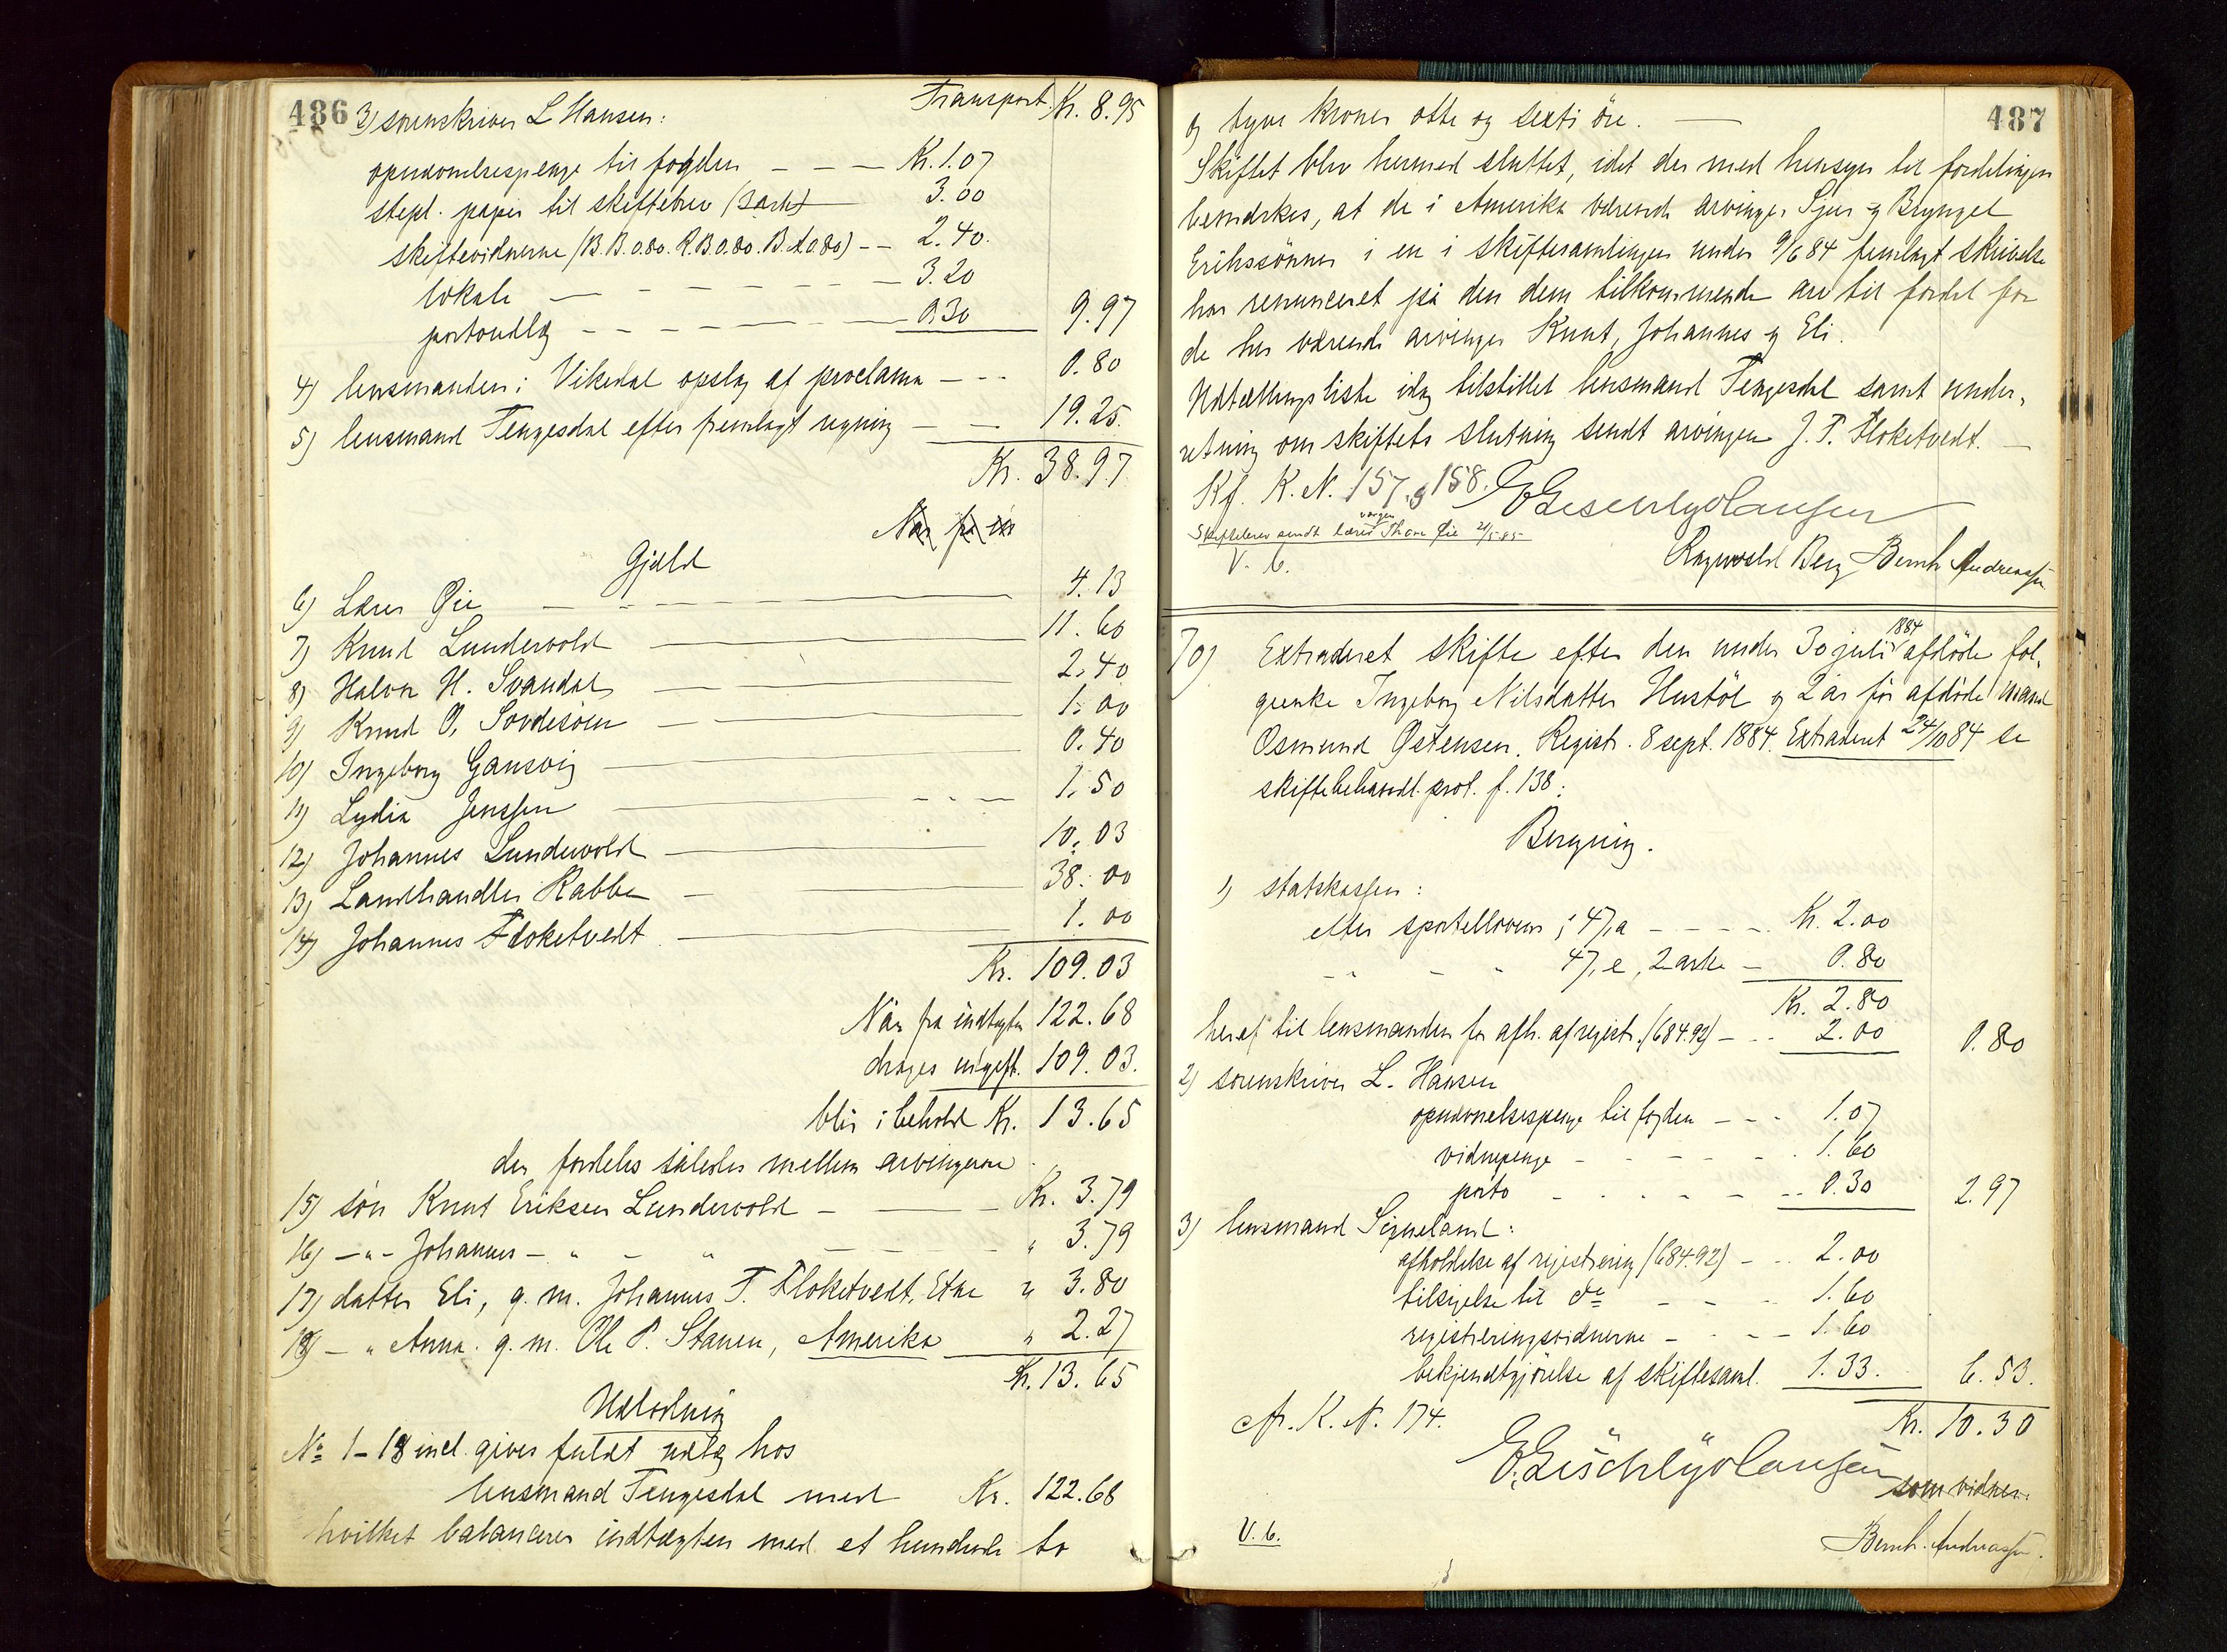 486
Transport. Kr. 8.95
3) sorenskriver L Hansen:
opudvnelsespenge til fogden - - - Kr. 1.07
stepl. papir til skiftebrev (3 ark) 3.00
skiftevidnerne (B.B. 0.80. R.B. 0.80. B.A. 0.80) - - 2.40.
lokale - - - - - - - 3.20
portoudlæg - - - - - - 0.30 9.97
4) lensmanden i Vikedal opslag af proclama - - - 0.80
5) lensmand Tengesdal efter fremlagt regning - - 19.25.
Kr. 38.97
Gjæld
6) Lærer Øie 4.13
7) Knud Lundevold 11.60
8) Halvor H. Svandal 2.40
9) Knud O. Sovdesøen 1.00
10) Ingeborg Gansvig 0.40
11) Lydia Jenssen 1.50
12) Johannes Lundevold 10.03
13) Landhandler Rabbe 38.00
14) Johannes Floketvedt 1.00
Kr. 109.03
Når fra indtægten 122.68
drages udgift. 109.03.
blir i behold Kr. 13.65
der fordeles således mellem arvingerne
15) søn Knut Eriksen Lundevold - Kr. 3.79
16) - " - Johannes - " - " " 3.79
17) datter Eli, g. m. Johannes T. Floketvedt, Etne " 3.80
18) - " Anna. g. m. Ole P. Stanen, Amerika " 2.27
Kr. 13.65
Udlodning
No 1-18 incl. gives fuldt udlæg hos
lensmand Tengesdal med Kr. 122.68
hvilket balancerer indtægten med et hundrede to
487
og tyve kroner otte og sexti öre.
Skiftet blev hermed sluttet, idet der med hensyn til fordelingen
bemærkes, at de i Amerika værende arvinger Sjur og Brynjel
Erikssönner i en i skiftesamlingen under 9/6 84 fremlagt skrivelse
har renunceret på den dem tilkommende arv til fordel for
de her værende arvinger Knut, Johannes og Eli.
Udtællingsliste idag tilstillet lensmand Tengesdal samt under-
retning om skiftets slutning sendt arvingen J. T. Floketvedt.
Kf. K. N. 157 og 158.
Skiftebrev sendt værgen lærer Thom Øie 21/5 85
V. b.
Ragnvald Berg Bernh. Andreassen
70) Extraderet skifte efter den under 30 juli 1884 afdöde fol-
geenke Ingeborg Nilsdatter Hustöl og 2 år för afdöde mand
Osmund Østensen. Registr. 8 sept. 1884. Extraderet 24/10 84 se
skiftebehandl. prot. f. 138:
Beregning.
1) statskassen:
efter sportelloven § 47, a - - - - Kr. 2.00
" - " 47, e, 2 arke - 0.80
Kr. 2.80
heraf til lensmanden for afh. af registr. (684.92) - - 2.00 0.80
2) sorenskriver L. Hansen
opudvnelsespenge til fogden - - 1.07
vidnepenge - - - - - 1.60
porto - - - - - 0.30 2.97
3) lensmand Signeland:
afholdelse af registrering (684.92) - - 2.00
tilsigelse til do - - - 1.60
registreringsvidnerne - - - 1.60
bekjendtgjörelse af skiftesaml. 1.33. 6.53.
Kr. 10.30
Afr. K. N. 174.
som vidner:
V. b.
Bernh. Andreassen.